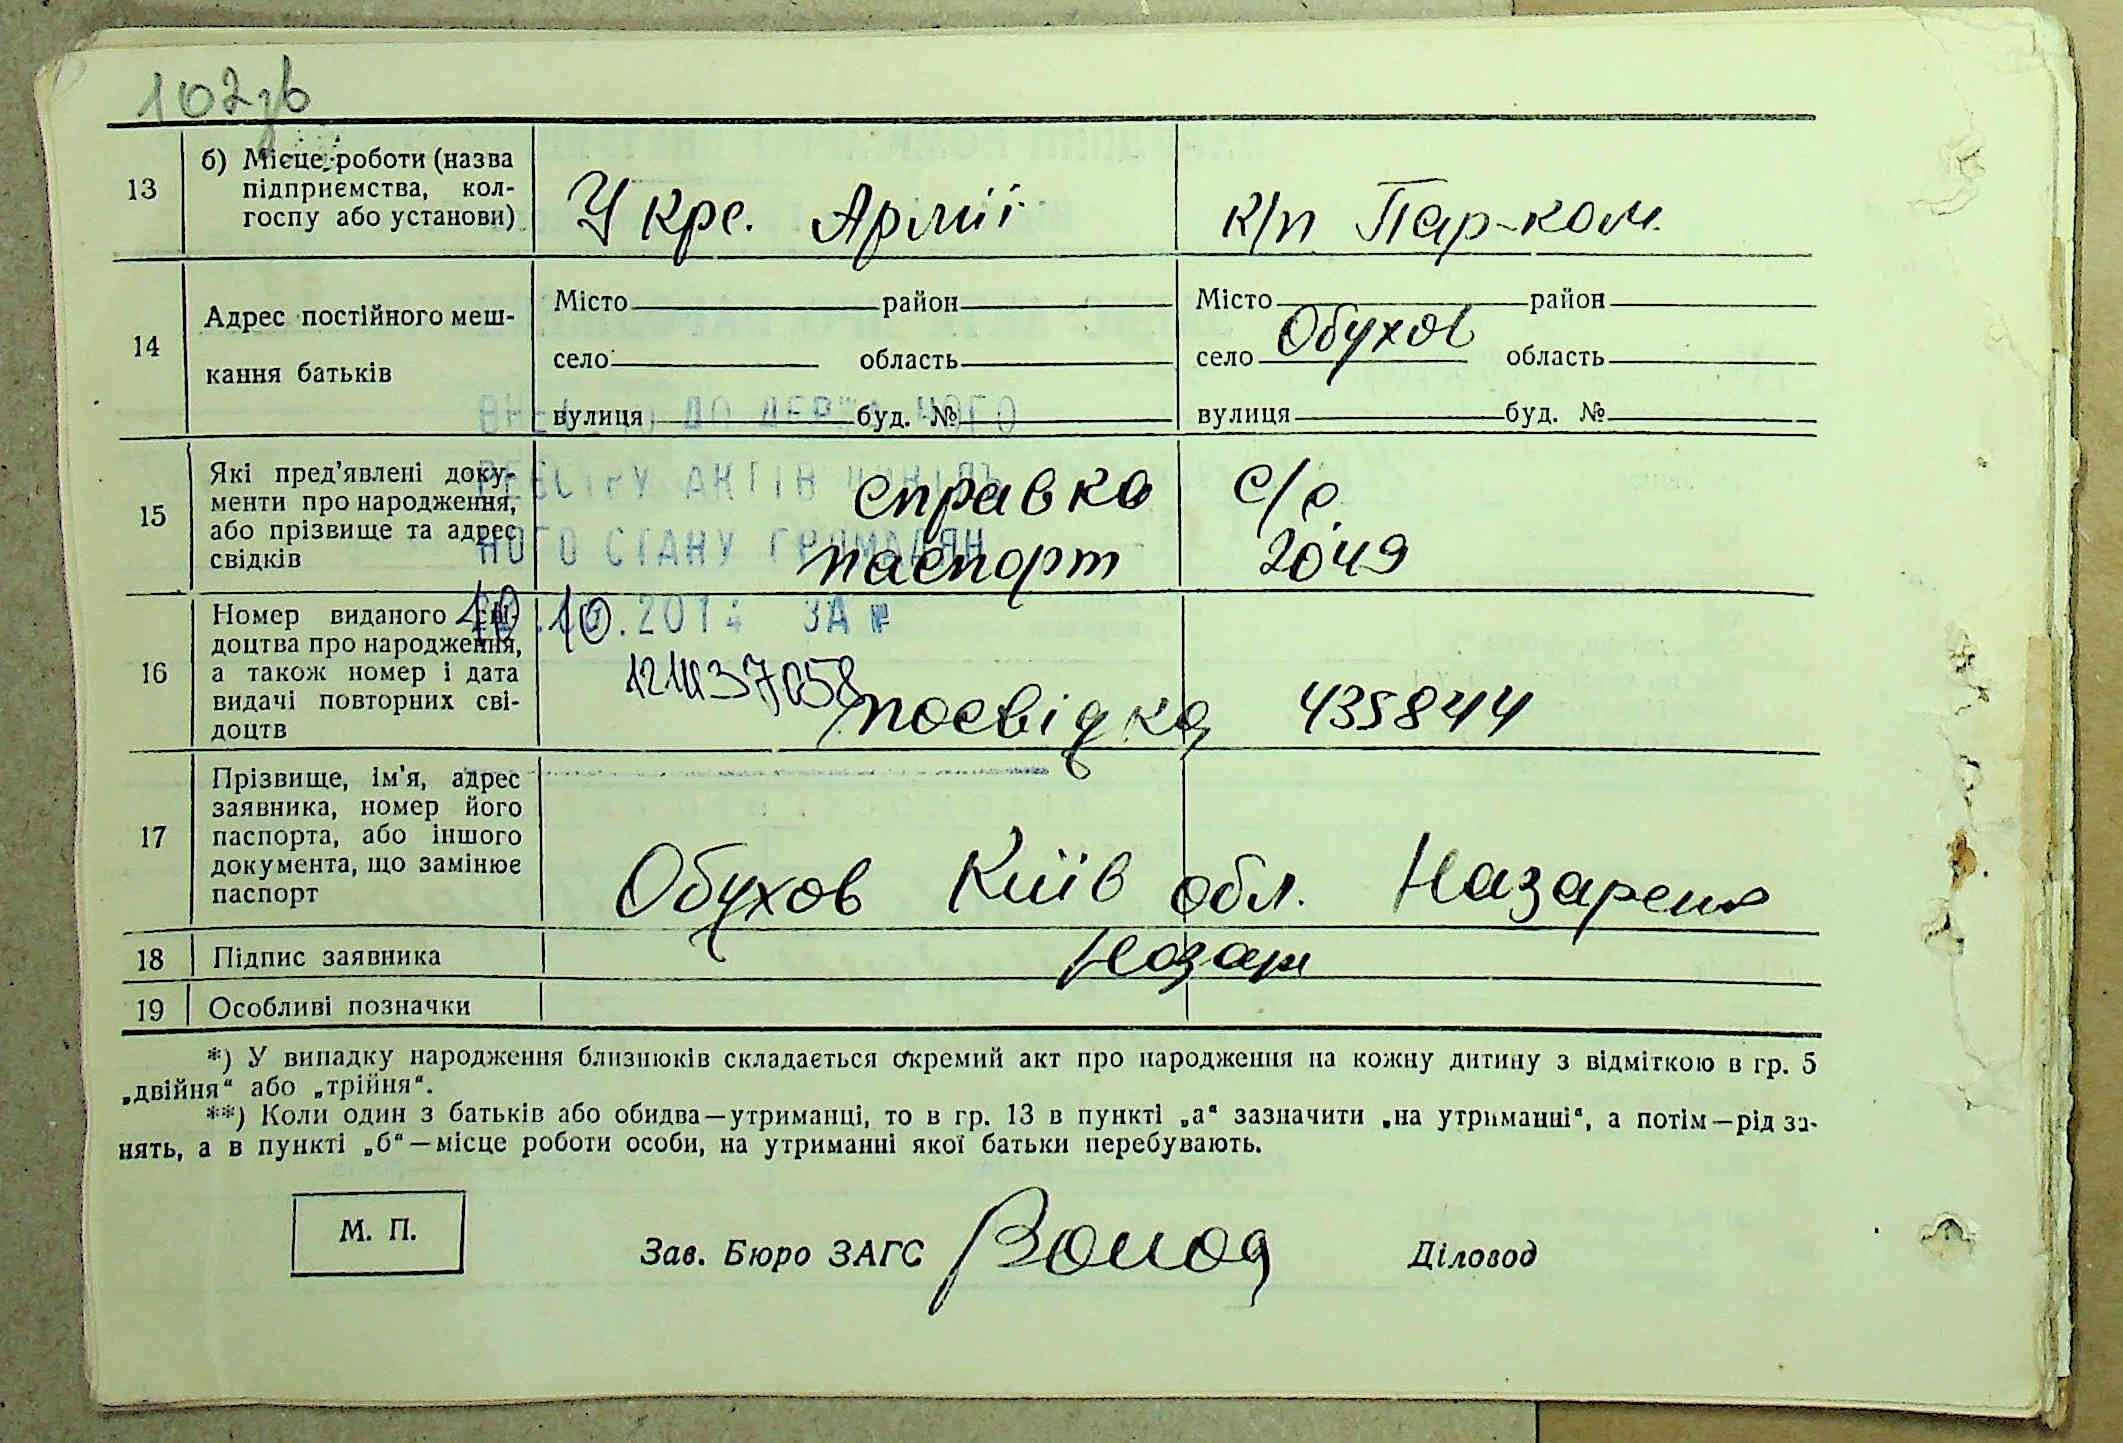 102зв
13
б) Місце роботи (назва
підприємства, кол-
госпу або установи)
У крс. Армії
к/п Пар-ком.
14
Адрес постійного меш-
кання батьків
Місто район
село область
вулиця буд. №
Місто район
село Обухов область
вулиця буд. №
ВНЕСЕНО ДО ДЕРЖАВНОГО
РЕЄСТРУ АКТІВ ЦИВІЛЬ
НОГО СТАНУ ГРОМАДЯН
10.10.2014 ЗА №
15
Які пред'явлені доку-
менти про народження,
або прізвище та адрес
свідків
справка с/с
паспорт 2049
16
Номер виданого сві-
доцтва про народження,
а також номер і дата
видачі повторних сві-
доцтв
посвідка 435844
17
Прізвище, ім'я, адрес
заявника, номер його
паспорта, або іншого
документа, що замінює
паспорт
Обухов Київ обл. Назаренко
18
Підпис заявника
Назар
19
Особливі позначки
*) У випадку народження близнюків складається окремий акт про народження на кожну дитину з відміткою в гр. 5
„двійня“ або „трійня“.
**) Коли один з батьків або обидва—утриманці, то в гр. 13 в пункті „а“ зазначити „на утриманні“, а потім—рід за-
нять, а в пункті „б“—місце роботи особи, на утриманні якої батьки перебувають.
М. П.
Зав. Бюро ЗАГС
Діловод